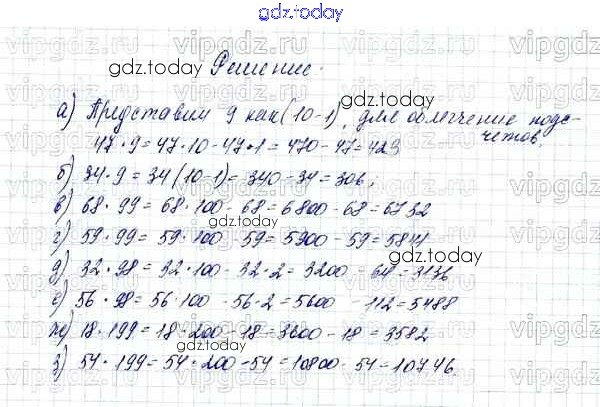 gdz.today
Решение.
а) Представим 9 как (10-1), для облегчение подс-
четов
47 · 9 = 47 · 10 - 47 · 1 = 470 - 47 = 423
б) 34 · 9 = 34 (10-1) = 340 - 34 = 306;
в) 68 · 99 = 68 · 100 - 68 = 6800 - 68 = 6732
г) 59 · 99 = 59 · 100 - 59 = 5900 - 59 = 5841
д) 32 · 98 = 32 · 100 - 32 · 2 = 3200 - 64 = 3136
е) 56 · 98 = 56 · 100 - 56 · 2 = 5600 - 112 = 5488
ж) 18 · 199 = 18 · 200 - 18 = 3600 - 18 = 3582
з) 54 · 199 = 54 · 200 - 54 = 10800 - 54 = 10746.
gdz.today
gdz.today
gdz.today
gdz.today
gdz.today
vipgdz.ru